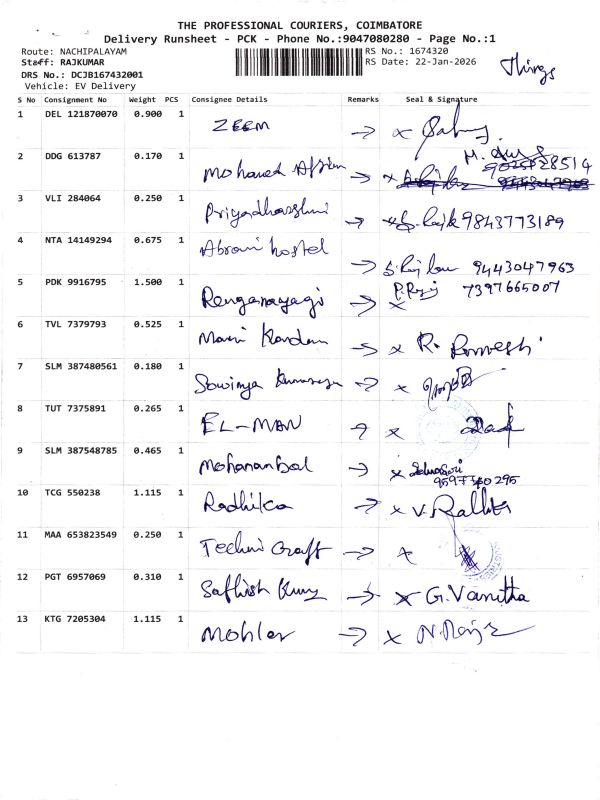 THE PROFESSIONAL COURIERS, COIMBATORE
Delivery Runsheet - PCK - Phone No.:9047080280 - Page No.:1
Route: NACHIPALAYAM RS No.: 1674320
Staff: RAJKUMAR RS Date: 22-Jan-2026
Things
DRS No.: DCJB167432001
Vehicle: EV Delivery
S No Consignment No Weight PCS Consignee Details Remarks Seal & Signature
1 DEL 121870070 0.900 1 ZEEM → x
2 DDG 613787 0.170 1 Mohamed → x 9025728514
3 VLI 284064 0.250 1 Priyadharshini → 9843773189
4 NTA 14149294 0.675 1 hostel → 9443047963
5 PDK 9916795 1.500 1 Renganayagi → x 7397665007
6 TVL 7379793 0.525 1 Mani → x R. Ramesh
7 SLM 387480561 0.180 1 Sowmya → x
8 TUT 7375891 0.265 1 EL-MAN → x
9 SLM 387548785 0.465 1 → x
10 TCG 550238 1.115 1 Radhika → x
11 MAA 653823549 0.250 1 Techni Craft → x
12 PGT 6957069 0.310 1 → x G. Vanitha
13 KTG 7205304 1.115 1 → x